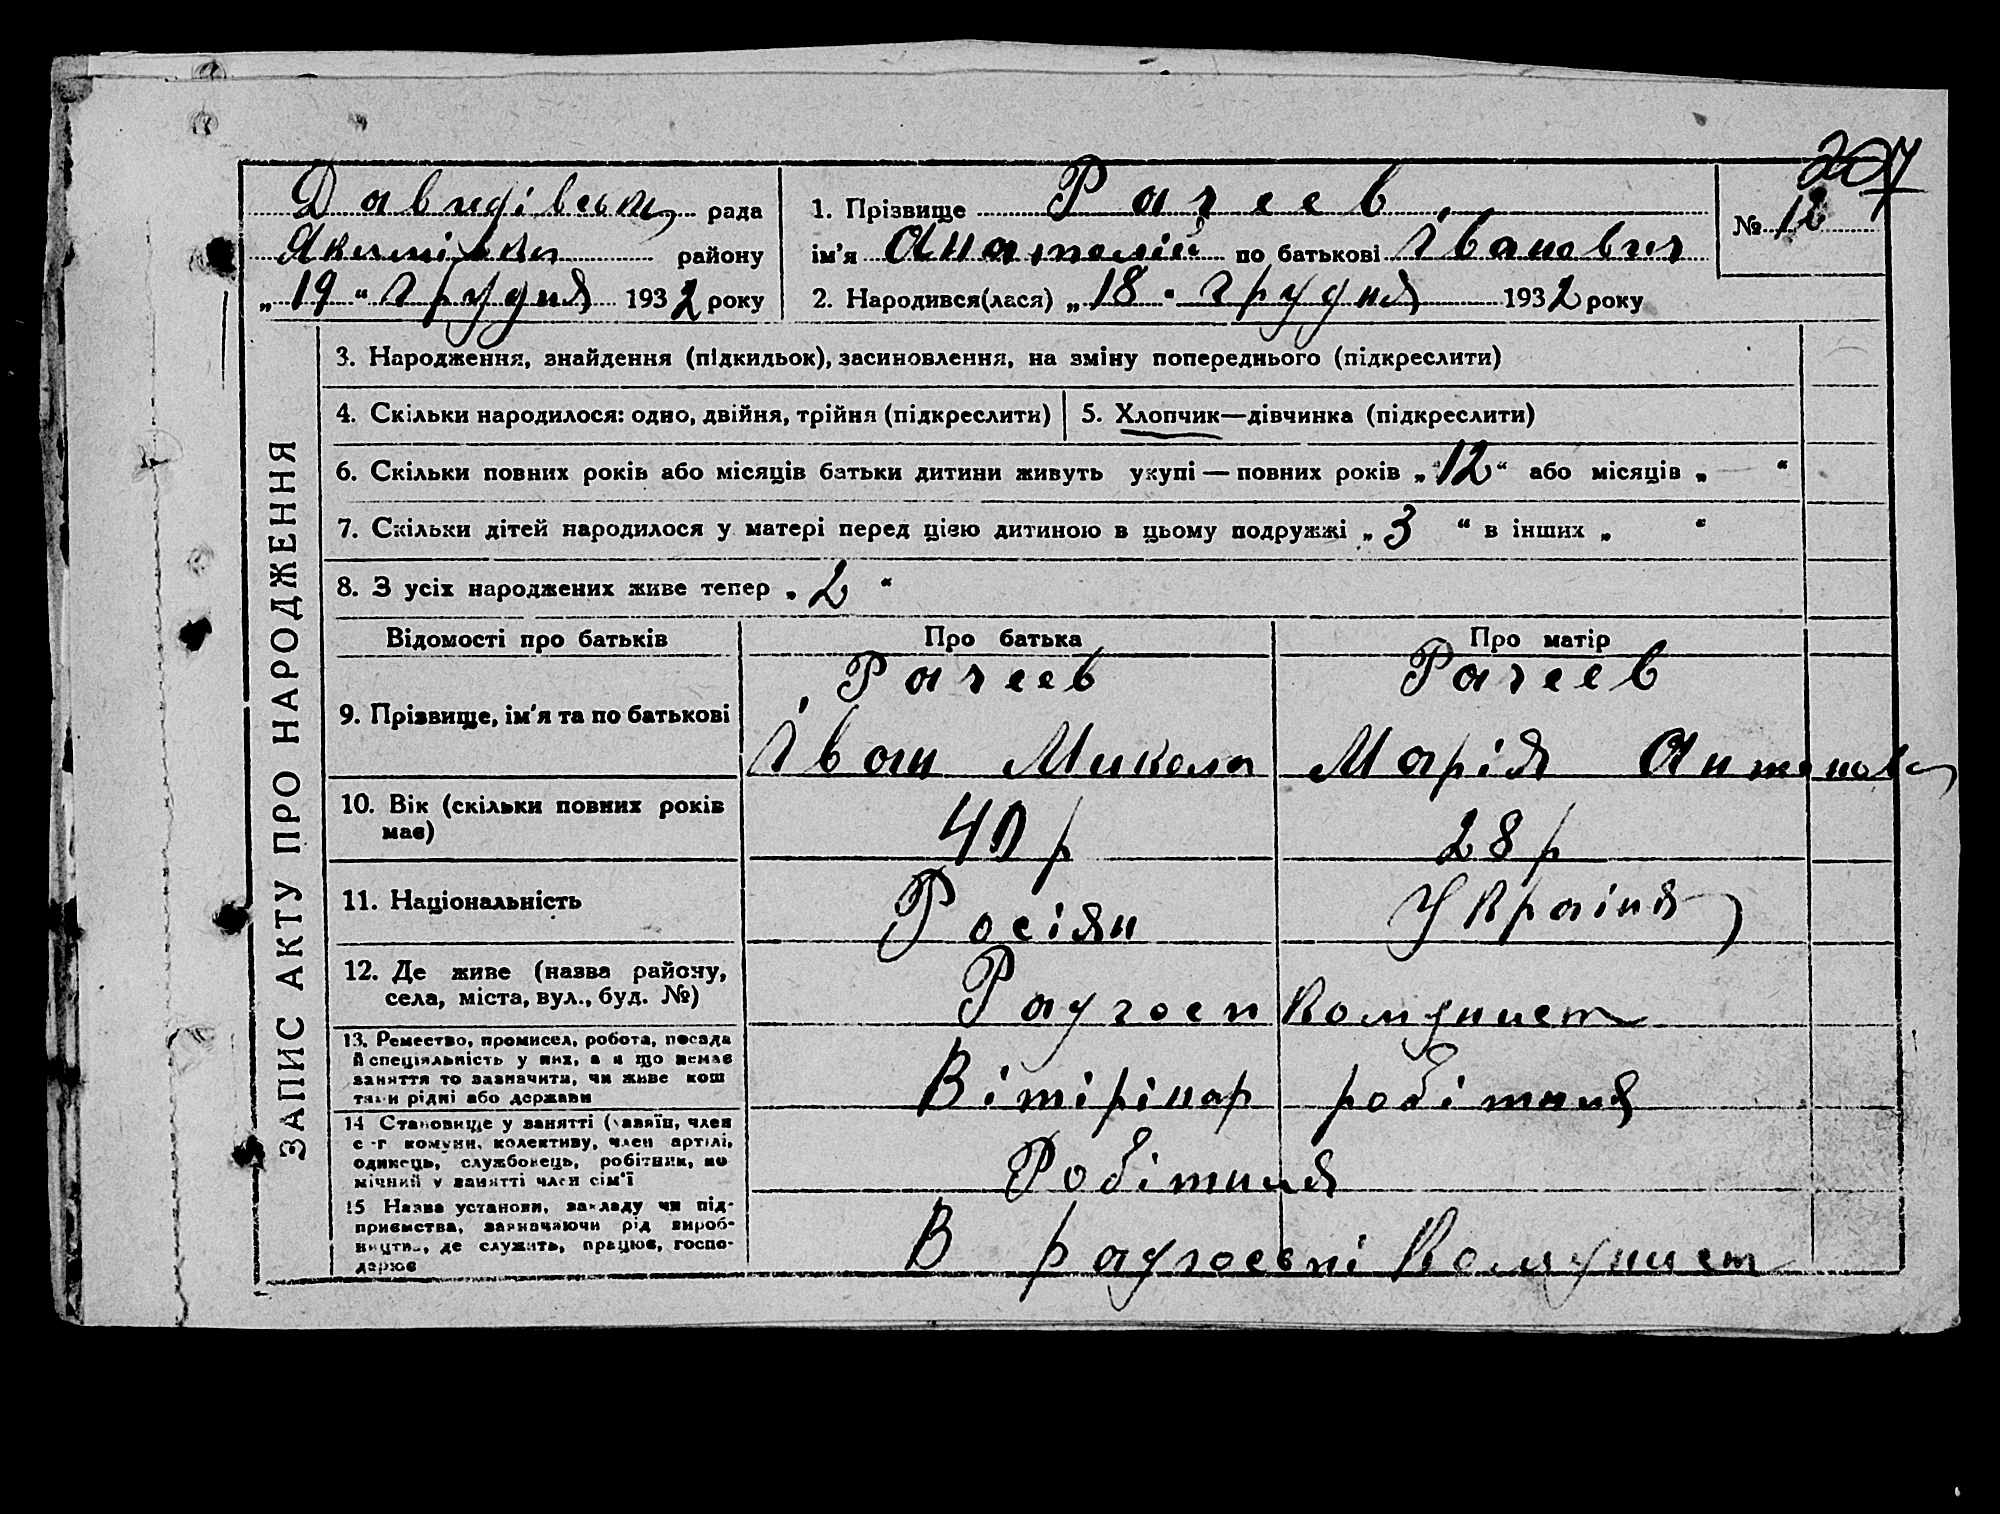 207
Давидівськ рада
Якимівки району
„ 19 “ грудня 1932 року
1. Прізвище Рагеев
ім'я Анатолій по батькові Іванович
2. Народився(лася) „ 18 “ грудня 1932 року
№ 12
ЗАПИС АКТУ ПРО НАРОДЖЕННЯ
3. Народження, знайдення (підкидьок), засиновлення, на зміну попереднього (підкреслити)
4. Скільки народилося: одно, двійня, трійня (підкреслити)
5. Хлопчик—дівчинка (підкреслити)
6. Скільки повних років або місяців батьки дитини живуть укупі — повних років „ 12 “ або місяців „ “
7. Скільки дітей народилося у матері перед цією дитиною в цьому подружжі „ 3 “ в інших „ “
8. З усіх народжених живе тепер „ 2 “
Відомості про батьків
Про батька
Про матір
9. Прізвище, ім'я та по батькові
Рагеев
Іван Микола
Рагеев
Марія Антонов
10. Вік (скільки повних років
має)
40 р
28 р
11. Національність
Росіян
Україня
12. Де живе (назва району,
села, міста, вул., буд. №)
Радгосп Комунист
13. Ремество, промисел, робота, посада
й спеціяльність у них, а якщо немає
заняття то зазначити, чи живе кош
тами рідні або держави
Вітірінар
робітниця
14 Становище у занятті (хазяїн, член
с-г комуни, колективу, член артілі,
одинець, службовець, робітник, по
мічний у занятті член сім'ї
Робітниця
15 Назва установи, закладу чи під-
приємства, зазначаючи рід вироб-
ництва, де служить, працює, госпо-
дарює
В радгоспі Комунист